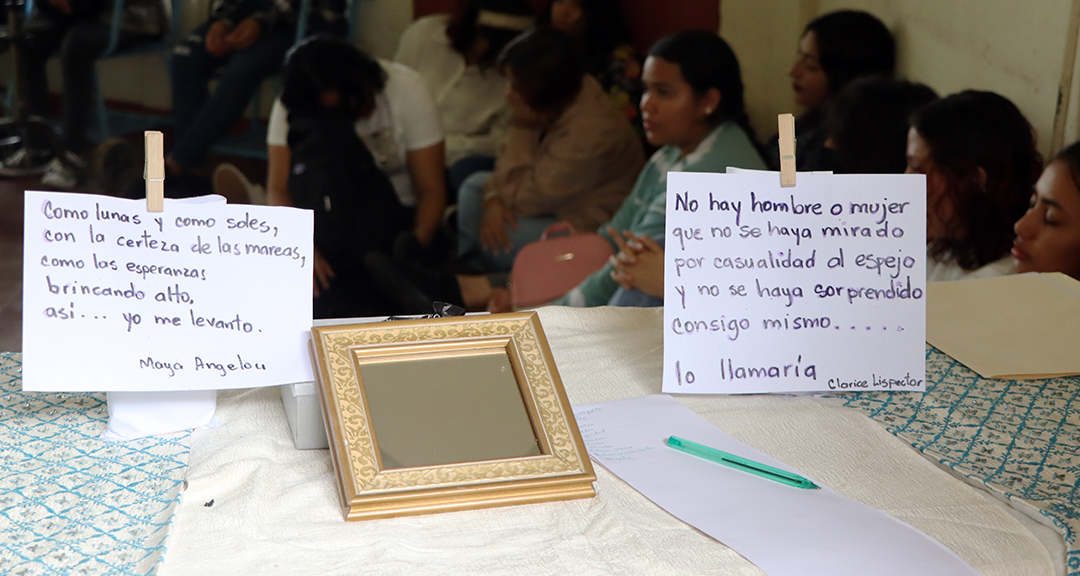 Como lunas y como soles,
con la certeza de las mareas,
como las esperanzas
brincando alto,
así... yo me levanto.
Maya Angelou
No hay hombre o mujer
que no se haya mirado
por casualidad al espejo
y no se haya sorprendido
consigo mismo.....
lo llamaría
Clarice Lispector